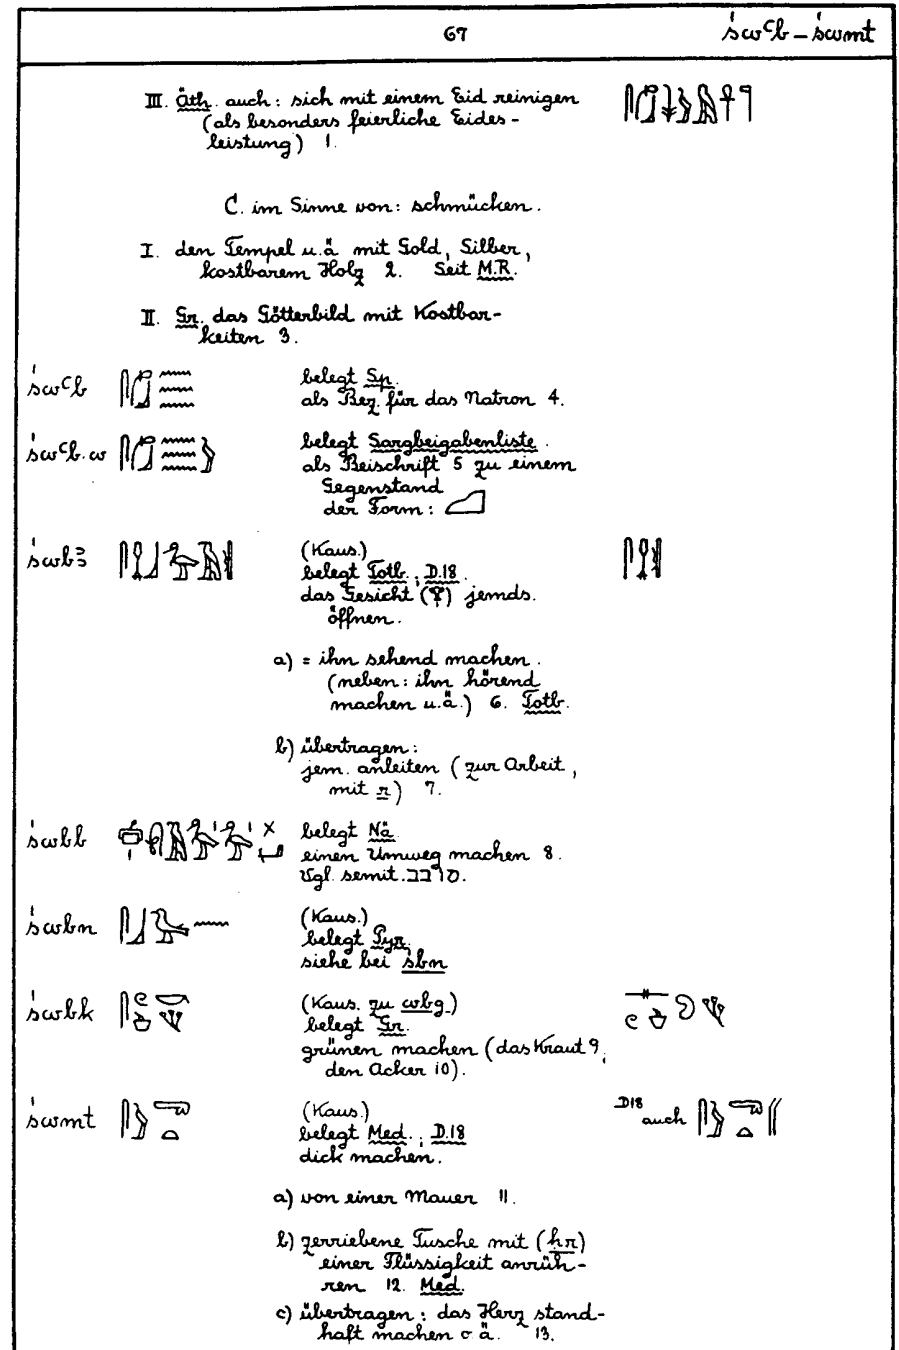 67 ś wꜥb – śwmt
III. Äth. auch: sich mit einem Eid reinigen
(als besonders feierliche Eides-
leistung) 1.
C. im Sinne von: schmücken.
I. den Tempel u.ä. mit Gold, Silber,
kostbarem Holz 2. Seit M.R.
II. Gr. das Götterbild mit Kostbar-
keiten 3.
śwꜥb belegt Sp.
als Bez. für das Natron 4.
śwꜥb.w belegt Sargbeigabenliste.
als Beischrift 5 zu einem
Gegenstand
der Form:
śwbꜣ (Kaus.)
belegt Totb.; D.18.
das Gesicht (𓁷) jemds.
öffnen.
a) = ihn sehend machen.
(neben: ihn hörend
machen u.ä.) 6. Totb.
b) übertragen:
jem. anleiten (zur Arbeit,
mit r) 7.
śwbb belegt Nä.
einen Umweg machen 8.
Vgl. semit. סבב.
śwbn (Kaus.)
belegt Pyr.
siehe bei śbn
śwbk (Kaus. zu wbg.)
belegt Gr.
grünen machen (das Kraut 9,
den Acker 10).
śwmt (Kaus.) D18 auch
belegt Med.; D.18
dick machen.
a) von einer Mauer 11.
b) zerriebene Tusche mit (ḥr)
einer Flüssigkeit anrüh-
ren 12. Med.
c) übertragen: das Herz stand-
haft machen o.ä. 13.